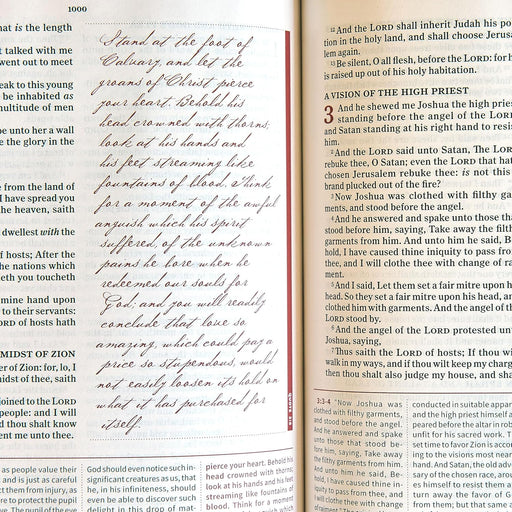 1000
hat is the length
t talked with me
went out to meet
eak to this young
be inhabited as
multitude of men
be unto her a wall
e the glory in the
e from the land of
I have spread you
he heaven, saith
dwellest with the
of hosts; After the
he nations which
h you toucheth
mine hand upon
to their servants:
ORD of hosts hath
MIDST OF ZION
er of Zion: for, lo, I
midst of thee, saith
joined to the LORD
people: and I will
d thou shalt know
ent me unto thee.
Stand at the foot of
Calvary, and let the
groans of Christ pierce
your heart. Behold his
head crowned with thorns;
look at his hands and
his feet streaming like
fountains of blood. Think
for a moment of the awful
anguish which his spirit
suffered, of the unknown
pains he bore when he
redeemed our souls for
God; and you will readily
conclude that love so
amazing, which could pay a
price so stupendous, would
not easily loosen its hold on
what it has purchased for
itself.
as people value their
and is just as careful
ct them from injury, as
re to protect the pupil
ve. The pupil of the eye
God should even notice such in-
significant creatures as us, that
he, in his infiniteness, should
even be able to discover such
delight in this drop of mat-
pierce your heart. Behold his
head crowned with thorns;
look at his hands and his feet
streaming like fountains of
blood. Think for a moment
12 And the LORD shall inherit Judah his po
tion in the holy land, and shall choose Jerusa
lem again.
13 Be silent, O all flesh, before the LORD: for h
is raised up out of his holy habitation.
A VISION OF THE HIGH PRIEST
3 And he shewed me Joshua the high pries
standing before the angel of the LORD
and Satan standing at his right hand to resis
him.
2 And the LORD said unto Satan, The LORD
rebuke thee, O Satan; even the LORD that hat
chosen Jerusalem rebuke thee: is not this
brand plucked out of the fire?
3 Now Joshua was clothed with filthy gar
ments, and stood before the angel.
4 And he answered and spake unto those tha
stood before him, saying, Take away the filthy
garments from him. And unto him he said, B
hold, I have caused thine iniquity to pass from
thee, and I will clothe thee with change of rai
ment.
5 And I said, Let them set a fair mitre upon h
head. So they set a fair mitre upon his head, an
clothed him with garments. And the angel of th
LORD stood by.
6 And the angel of the LORD protested unt
Joshua, saying,
7 Thus saith the LORD of hosts; If thou wi
walk in my ways, and if thou wilt keep my charg
then thou shalt also judge my house, and sha
3:3-4 "Now Joshua was
clothed with filthy garments,
and stood before the angel.
And he answered and spake
unto those that stood be-
fore him, saying, Take away
the filthy garments from
him. And unto him he said,
Behold, I have caused thine
iniquity to pass from thee,
and I will clothe thee with
conducted in suitable appare
and the high priest himself a
peared before the altar in rob
unfit for his sacred work. Th
set time to favor Zion is accor
ing to the visions most near
hand. And Satan, the old adve
sary of the chosen race, arous
es himself to resist them a
turn away the favor of G
from them; but that same d